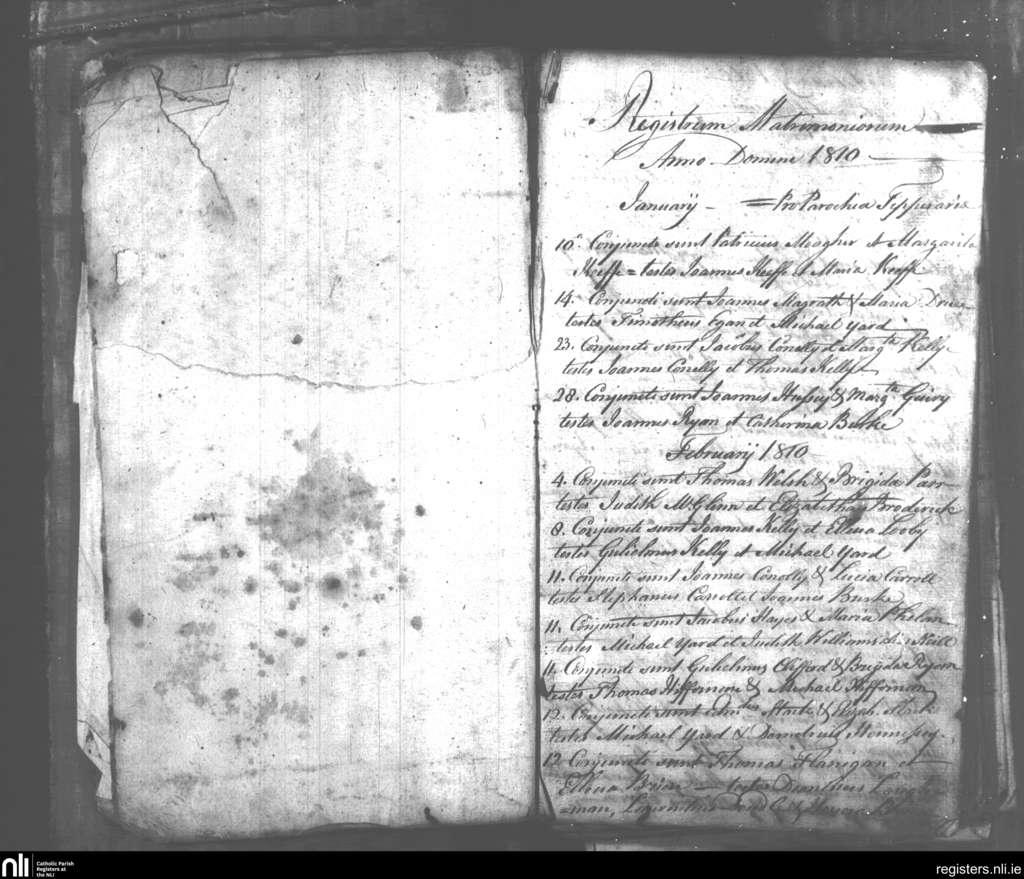 Registrum Matrimoniorum
Anno Domini 1810
January - = Pro Parochia Tipperarie
10. Conjuncti sunt Patricius Meagher et Margarita
Keiffe = testes Joannes Keiffe et Maria Keaffe
14. Conjuncti sunt Joannes Magrath & Maria
testes Timotheus Egan et Michael Yard
23. Conjuncti sunt Jacobus Conelly et Margta Kelly
testes Joannes Conelly et Thomas Kelly
28. Conjuncti sunt Joannes Hussey & Margta Guiry
testes Joannes Ryan et Catherina Burke
February 1810
4. Conjuncti sunt Thomas Welsh & Brigida Parr
testes Judith McGlinn et Elizabetha Broderick
8. Conjuncti sunt Joannes Kelly et Ellena Looby
testes Gulielmus Kelly et Michael Yard
11. Conjuncti sunt Joannes Conolly & Lucia Carroll
testes Stephanus Carroll et Joannes Burke
11. Conjuncti sunt Jacobus Hayes & Maria Phelan
testes Michael Yard et Judith Williams Neill
11. Conjuncti sunt Gulielmus Clifford & Brigida Ryan
testes Thomas Hiffernon & Michael Hiffernon
12. Conjuncti sunt & Elizab.
testes Michael Yard & Cornelius Hennessy
12 Conjuncti sunt Thomas Flanigan et
Ellena Brien testes
=man,
nli
Catholic Parish
Registers at
the NLI
registers.nli.ie